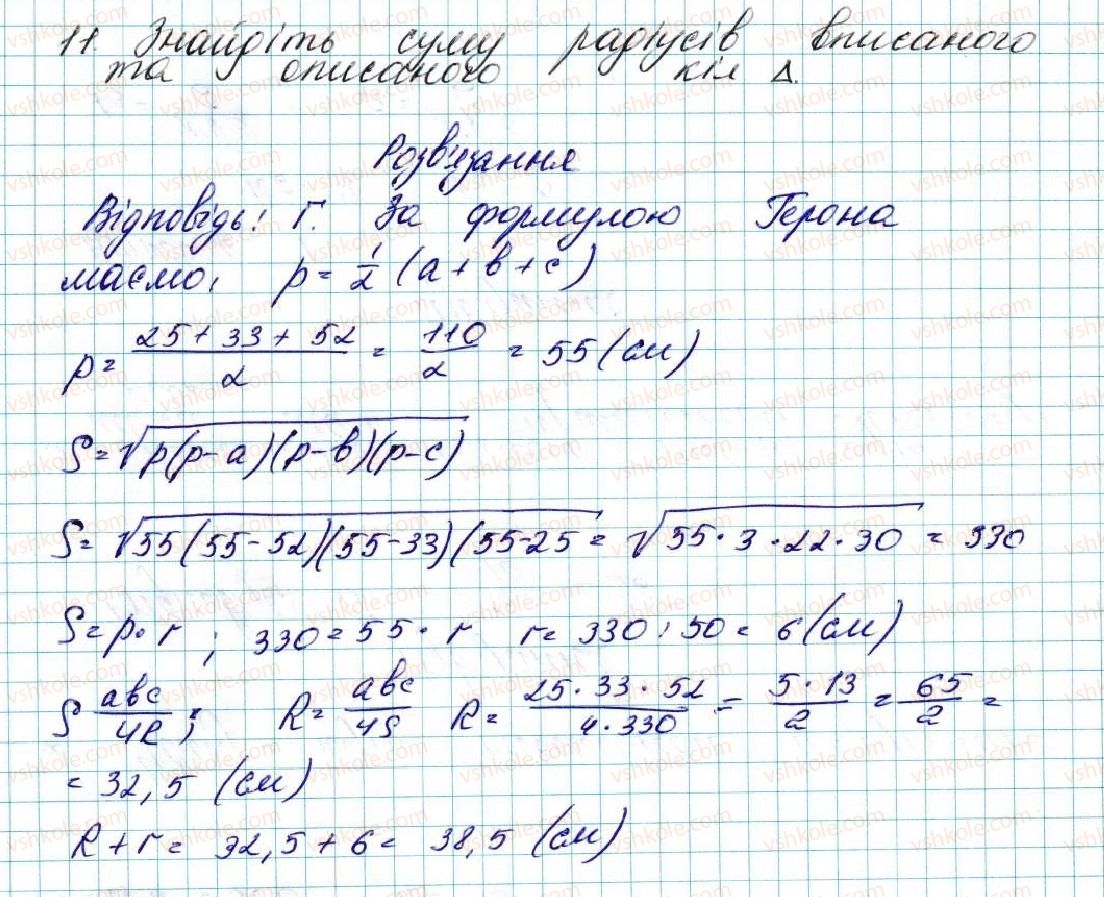 11. Знайдіть суму радіусів вписаного
та описаного кіл Δ.
Розв'язання
Відповідь: Г. За формулою Герона
маємо, p = 1/2 (a + b + c)
p = (25 + 33 + 52)/2 = 110/2 = 55 (см)
S = √p(p-a)(p-b)(p-c)
S = √55(55-52)(55-33)(55-25 = √55·3·22·30 = 330
S = p·r ; 330 = 55·r r = 330 : 50 = 6 (см)
S abc/4R ; R = abc/4S R = 25·33·52/4·330 = 5·13/2 = 65/2 =
= 32,5 (см)
R + r = 32,5 + 6 = 38,5 (см)